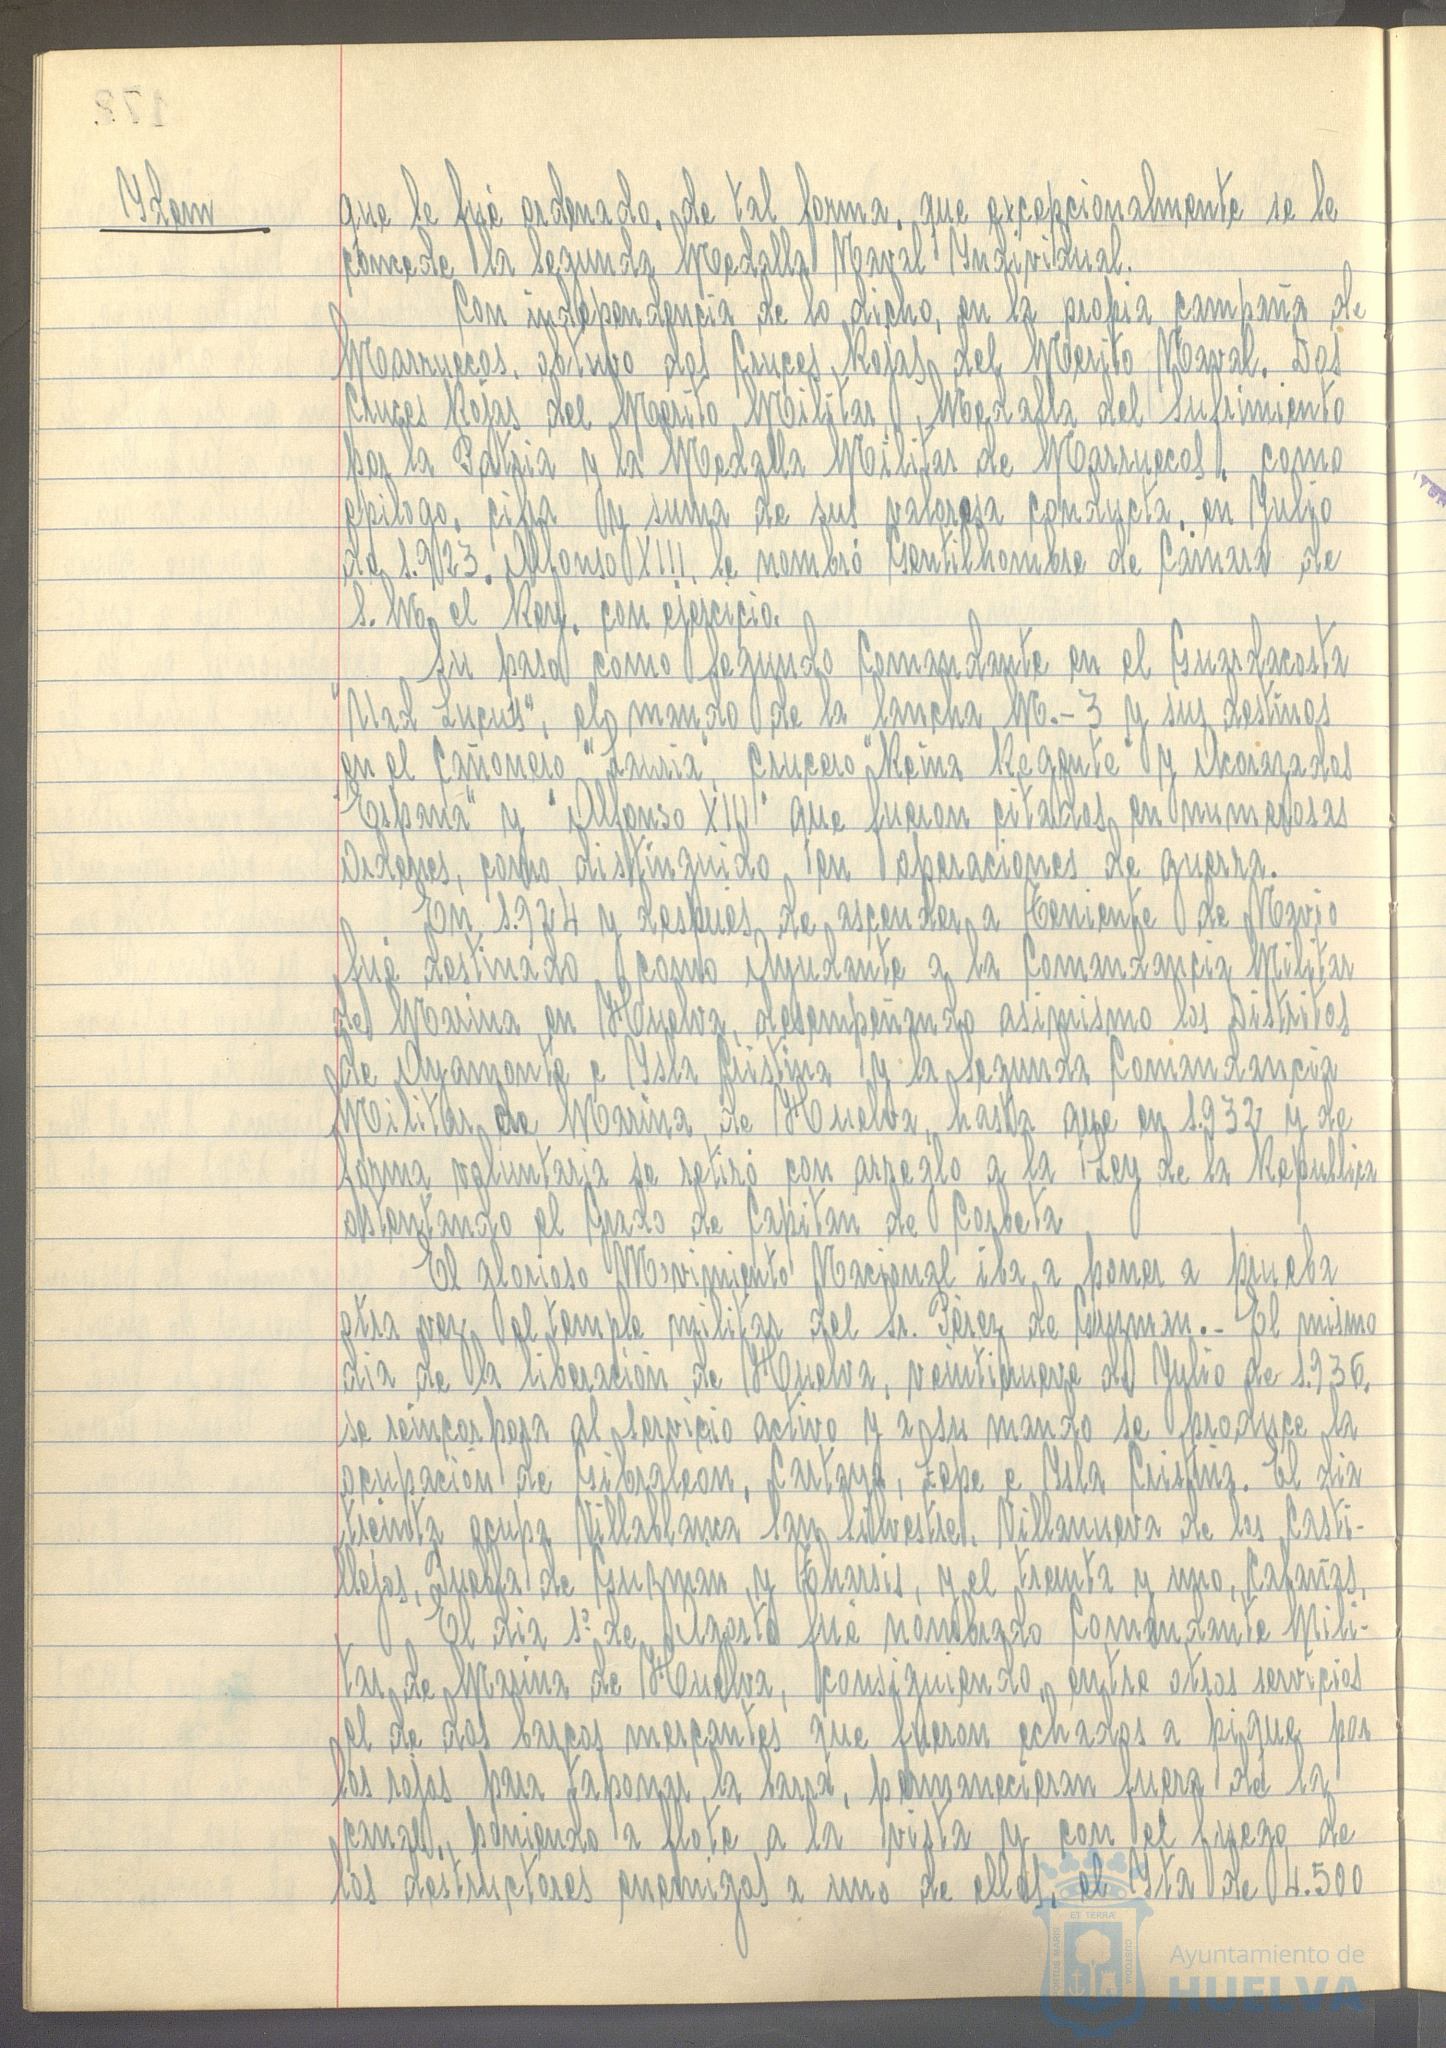 Ydem
que le fué ordenado, de tal forma, que excepcionalmente se le
concede la Segunda Medalla Naval Individual.
Con independencia de lo dicho, en la propia campaña de
Marruecos, obtuvo dos Cruces Rojas del Merito Naval. Dos
Cruces Rojas del Merito Militar, Medalla del Sufrimiento
por la Patria y la Medalla Militar de Marruecos, como
epilogo, cifra y suma de sus valerosa conducta, en Julio
de 1.923. Alfonso XIII, le nombró Gentilhombre de Cámara de
S. M. el Rey, con ejercicio.
Su paso como Segundo Comandante en el Guardacosta
"Uad Lucus", el mando de la lancha M.-3 y sus destinos
en el Cañonero "Lauria", Crucero "Reina Regente" y Acorazados
"España" y "Alfonso XIII" que fueron citados en numerosas
Ordenes, como distinguido en operaciones de guerra.
En 1.924 y despues de ascender a Teniente de Navio
fué destinado como Ayudante a la Comandancia Militar
de Marina en Huelva, desempeñando asimismo los Distritos
de Ayamonte e Ysla Cristina y la Segunda Comandancia
Militar de Marina de Huelva, hasta que en 1.932 y de
forma voluntaria se retiró con arreglo a la Ley de la Republica
ostentando el Grado de Capitan de Corbeta
El glorioso Movimiento Nacional iba a poner a prueba
otra vez el temple militar del Sr. Pérez de Guzman.- El mismo
dia de la liberación de Huelva, veintinueve de Julio de 1.936,
se reincorpora al servicio activo y a su mando se produce la
ocupación de Gibraleon, Cartaya, Lepe e Ysla Cristina. El dia
treinta ocupa Villablanca San Silvestre, Villanueva de los Casti-
llejos, Puebla de Guzman y Tharsis, y el treinta y uno, Cabañas,
El dia 1º de Agosto fué nombrado Comandante Mili-
tar de Marina de Huelva, consiguiendo, entre otros servicios
el de dos barcos mercantes que fueron echados a pique por
los rojos para taponar la barra, permanecieran fuera de la
canal, poniendo a flote a la vista y con el fuego de
los destructores enemigos a uno de ellos, el Ysta de 4.500
ET TERRÆ
PORTUS MARIS
CUSTODIA
Ayuntamiento de
HUELVA